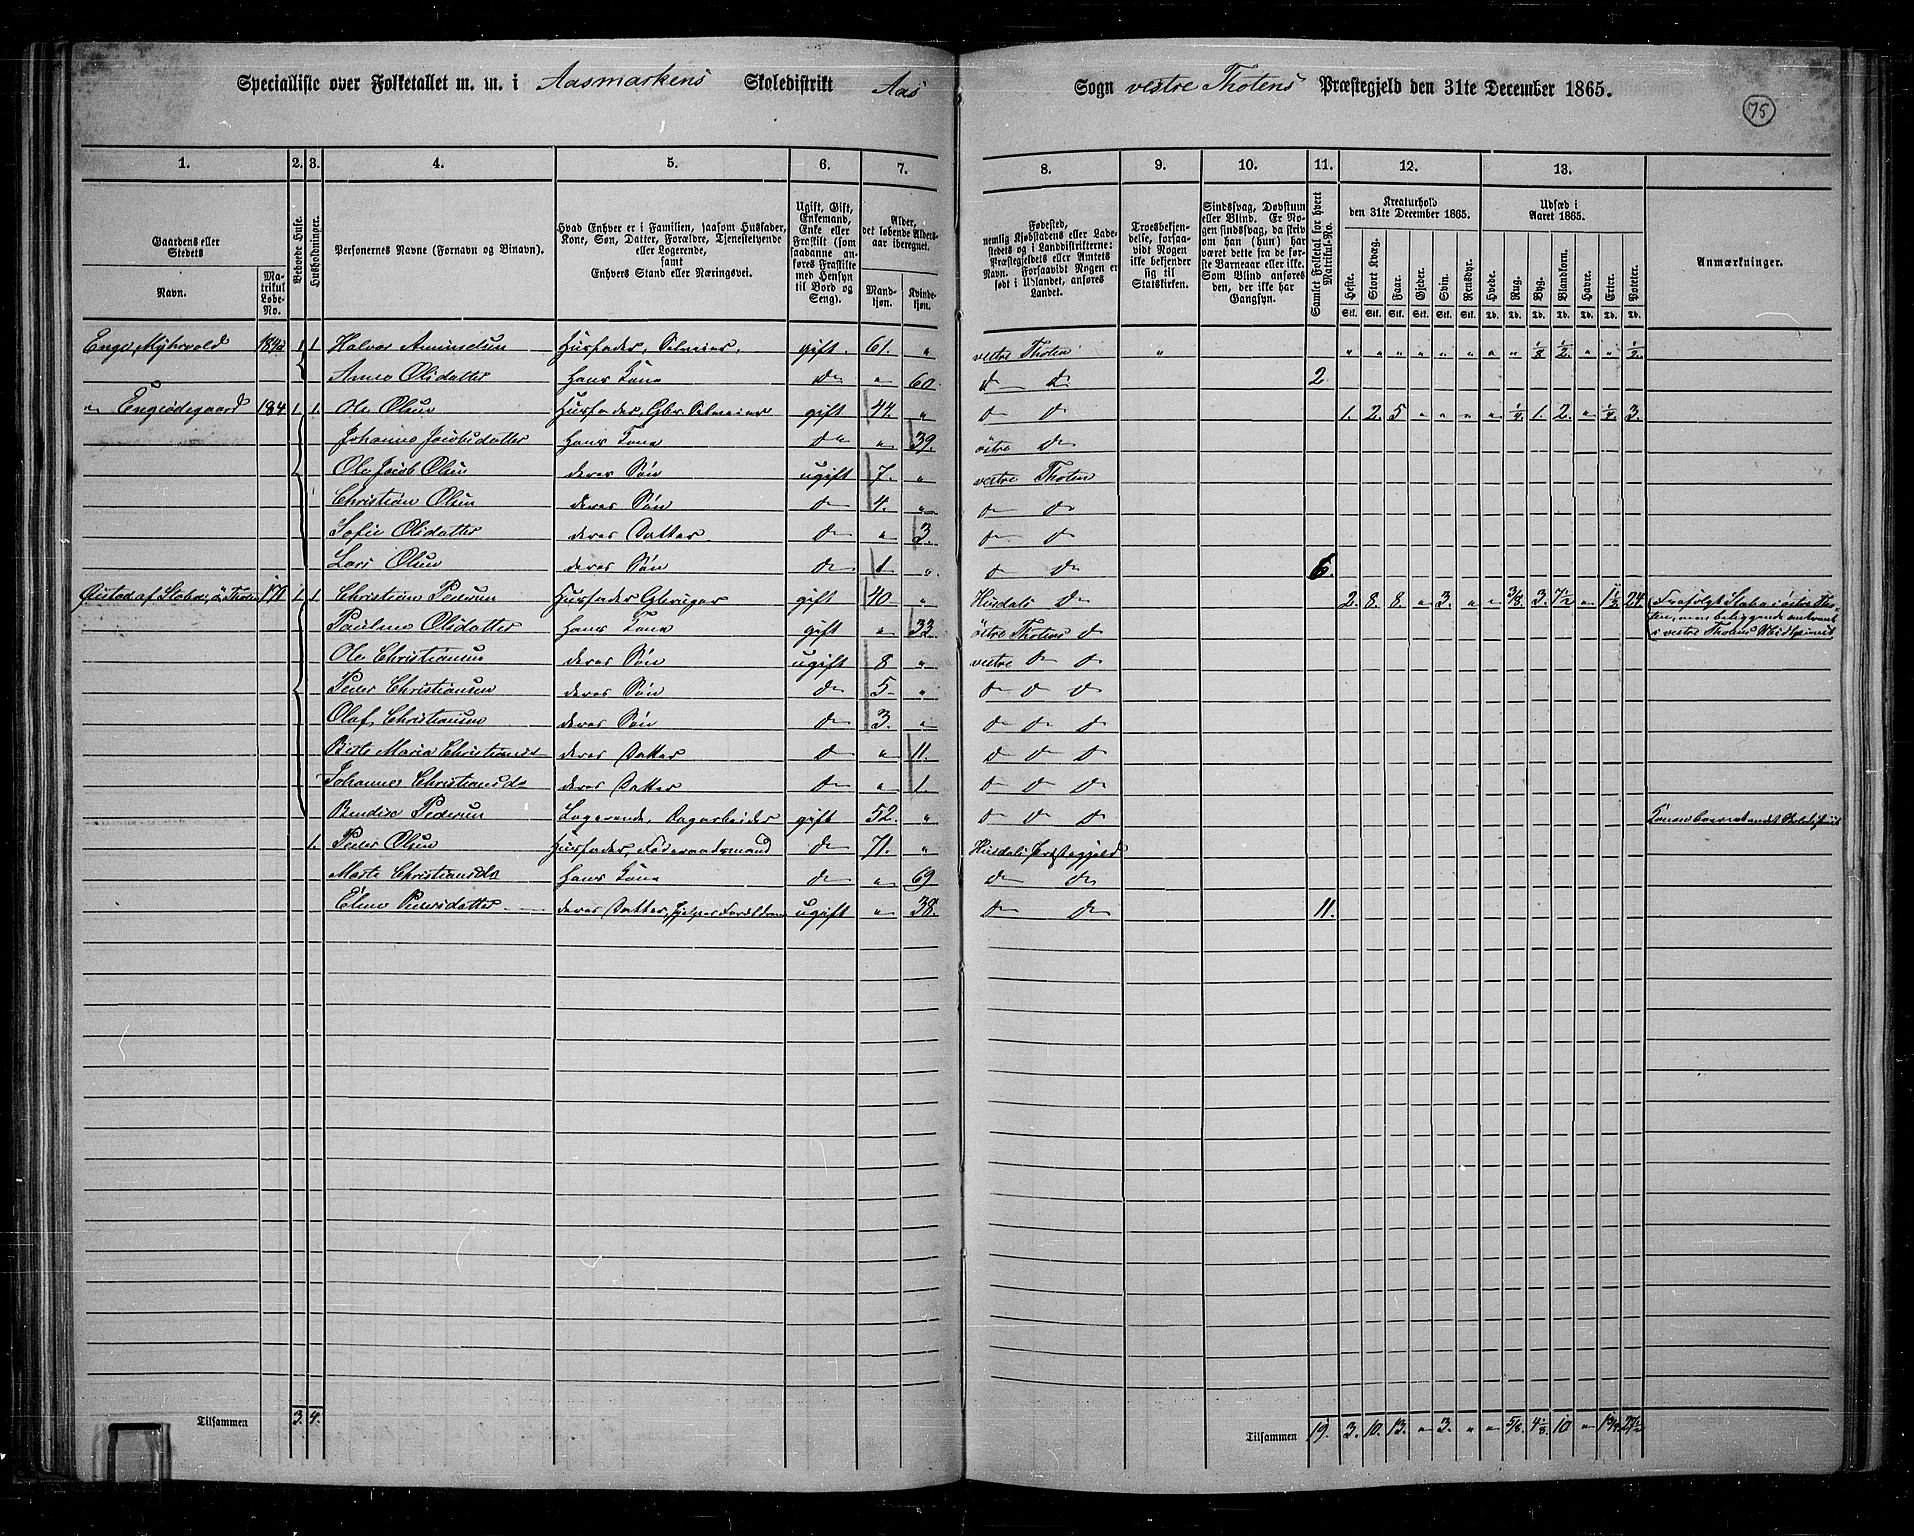 Specialliste over Folketallet m. m. i Aasmarkens Skoledistrikt Aas Sogn vestre Thotens Præstegjeld den 31te December 1865.
75
1. 2. 3. 4. 5. 6. 7. 8. 9. 10. 11. 12. 13.
Gaardens eller Stedets Navn.
Matrikul Løbe-No.
Beboede Huse.
Husholdninger.
Personernes Navne (Fornavn og Binavn).
Hvad Enhver er i Familien, saasom Husfader, Kone, Søn, Datter, Forældre, Tjenestetyende eller Logerende, samt Enhvers Stand eller Næringsvei.
Ugift, Gift, Enkemand, Enke eller Fraskilt (som saadanne anføres Fraskilte med Hensyn til Bord og Seng).
Alder, det løbende Aldersaar iberegnet.
Mandkjøn. Kvindekjøn.
Fødested, nemlig Kjøbstadens eller Ladestedets og i Landdistrikterne: Præstegjeldets eller Amtets Navn. Forsaavidt Nogen er født i Udlandet, anføres Landet.
Troesbekjendelse, forsaavidt Nogen ikke bekjender sig til Statskirken.
Sindssvag, Døvstum eller Blind. Er Nogen sindssvag, da skriv om han (hun) har været dette fra de første Barneaar eller ikke. Som Blind anføres den, der ikke har Gangsyn.
Samlet Folketal for hvert Matrikul-No.
Kreaturhold den 31te December 1865.
Heste. Stort Kvæg. Faar. Gjeder. Svin. Rensdyr.
Udsæd i Aaret 1865.
Hvede. Rug. Byg. Blandkorn. Havre. Erter. Poteter.
Stk. Stk. Stk. Stk. Stk. Stk. Td. Td. Td. Td. Td. Td. Td.
Anmærkninger.
Enge, Myhrvold 1 1 Halvor Amundsen Husfader, Selveier, gift. 61. " vestre Thoten " " " " " " " " " 1/8 1/2 " " 1/2
Anne Olsdatter hans Kone do " 60. do do 2
" Engeødegaard 184 1. 1. Ole Olsen Husfader, Gbr. Selveier gift 44. " do do 1. 2. 5 " " " " 1/4 1. 2. " 1/4 3.
Johanne Jacobsdatter hans Kone do " 39. östre do
Ole Jacob Olsen deres Søn ugift 7. " vestre Thoten
Christian Olsen deres Søn do 4. " do do
Sofie Olsdatter deres Datter do " 3. do do
Lars Olsen deres Søn do 1 " do do 6.
1 1 Christian Pedersen Husfader Gbruger gift 40 " Hurdals do 2. 8. 8. " 3. " " 3/8 3. 7 1/2 " 1 1/2 24.
Pauline Olsdatter hans Kone gift " 33. östre Thotens do
Ole Christiansen deres Søn ugift 8 " vestre do do
Peder Christiansen deres Søn do 5 " do do do
Olaf Christiansen deres Søn do 3. " do do do
Christiansd deres Datter do " 11. do do do
Johanne Christiansdr deres Datter do " 1. do do do
Pedersen Logerende, Dagarbeider gift 52. " do do do
1. Peder Olsen Husfader, Føderaadsmand do 71. " Hurdals Præstegjeld
Marte Christiansdr hans Kone do " 69 do do
Eline Pedersdatter deres Datter, hjelper Forældrene ugift " 38. do do 11.
Tilsammen 3. 4.
Tilsammen 19. 3. 10. 13. " 3. " " 5/8 4 1/8 10 " 1 3/4 27 1/2